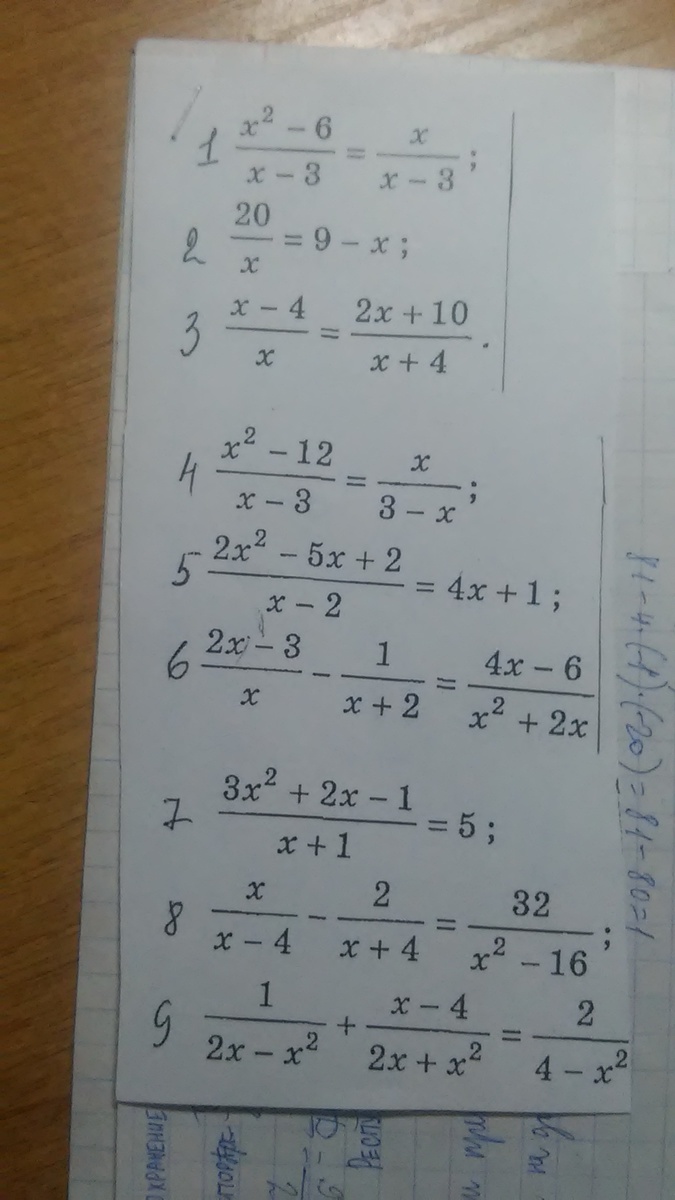 1 \frac{x^2 - 6}{x - 3} = \frac{x}{x - 3};
2 \frac{20}{x} = 9 - x;
3 \frac{x - 4}{x} = \frac{2x + 10}{x + 4}.
4 \frac{x^2 - 12}{x - 3} = \frac{x}{3 - x};
5 \frac{2x^2 - 5x + 2}{x - 2} = 4x + 1;
6 \frac{2x - 3}{x} - \frac{1}{x + 2} = \frac{4x - 6}{x^2 + 2x}
7 \frac{3x^2 + 2x - 1}{x + 1} = 5;
8 \frac{x}{x - 4} - \frac{2}{x + 4} = \frac{32}{x^2 - 16};
9 \frac{1}{2x - x^2} + \frac{x - 4}{2x + x^2} = \frac{2}{4 - x^2}
81-4·(-1)·(-20)=81-80=1